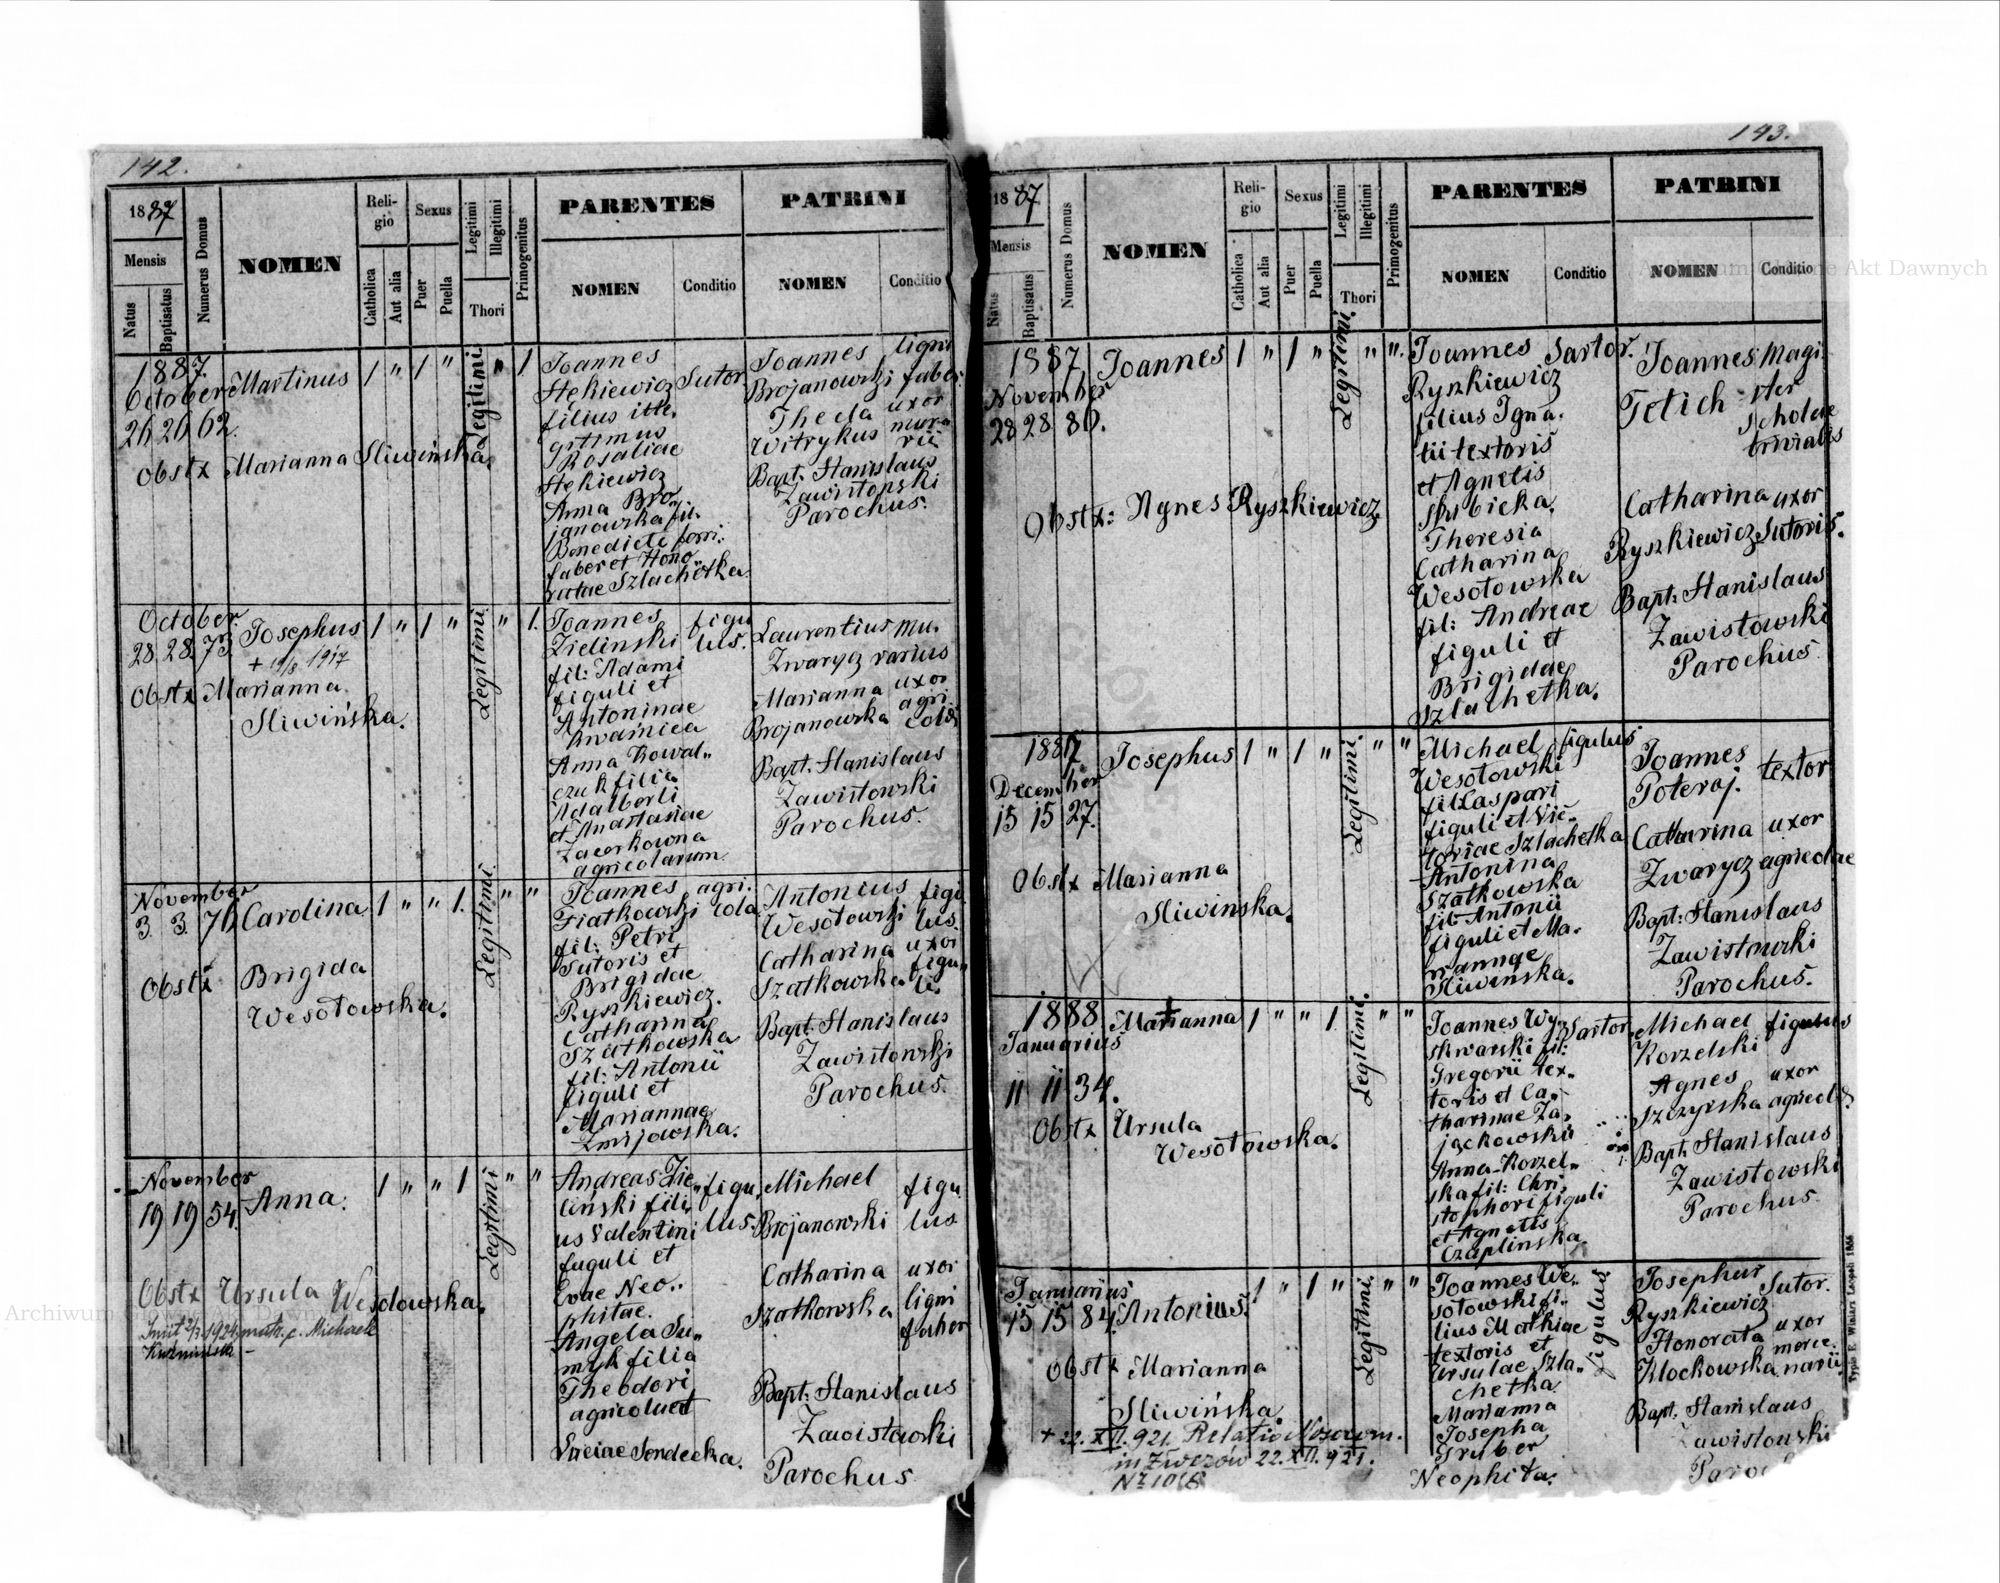 142.
1887
Mensis
Natus
Baptisatus
Numerus Domus
NOMEN
Religio
Catholica
Aut alia
Sexus
Puer
Puella
Legitimi
Illegitimi
Thori
Primogenitus
PARENTES
NOMEN
Conditio
PATRINI
NOMEN
Conditio
1887.
October
26 26 62.
Martinus
1 " 1 "
Legitimi
" 1
Obstx Marianna Sliwińska.
Joannes
Hękiewicz Sutor
filius ille.
gitimus
Rosaliae
Hękiewicz
Anna Bro
janowska fil.
Benedicti ferri.
faber et Hono
ratae Szlachetka.
Joannes ligni
Brojanowski faber
Thecla uxor
Witrykus mur-
rii
Bapt. Stanislaus
Zawistowski
Parochus.
October
28. 28. 73.
Josephus
+ 1917
1 " 1 "
Legitimi.
" 1.
Obstx Marianna
Sliwińska.
Joannes figu
Zielinski lus.
fil: Adami
figuli et
Antoninae
Kwarnica
Anna Kowal-
czuk filia
Adalberti
et Anastasiae
Zacerkowna
agricolarum.
Laurentius mu.
Zwarycz rarius
Marianna uxor
Brojanowska agri
colae
Bapt. Stanislaus
Zawistowski
Parochus.
November
3. 3. 76
Carolina
1 " " 1.
Legitimi.
" "
Obstx Brigida
Wesołowska.
Joannes agri.
Fiatkowski cola
fil: Petri
Sutoris et
Brigidae
Ryszkiewicz.
Catharina
Szatkowska
fil: Antonii
figuli et
Mariannae
Zmijowska.
Antonius figu
Wesołowski lus.
Catharina uxor
Szatkowska figu-
li.
Bapt. Stanislaus
Zawistowski
Parochus.
November
19 19 54.
Anna.
1 " " 1
Legitimi
" "
Obstx Ursula Wesołowska.
1924 matr. c. Michaele
Andreas Zie- figu.
liński fili- lus.
us Valentini
fuguli et
Evae Neo..
phitae.
Angela Su-
myk filia
Theodori
agricolae et
Luciae Sendecka.
Michael figu
Brojanowski lus
Catharina uxor
Szatkowska ligni
faber
Bapt. Stanislaus
Zawistowski
Parochus
143.
1887
Mensis
Natus
Baptisatus
Numerus Domus
NOMEN
Religio
Catholica
Aut alia
Sexus
Puer
Puella
Legitimi
Illegitimi
Thori
Primogenitus
PARENTES
NOMEN
Conditio
PATRINI
NOMEN
Conditio
1887.
November
28 28 86.
Joannes
1 " 1 "
Legitimi.
" ".
Obstx: Agnes Ryszkiewicz.
Joannes Sartor.
Ryszkiewicz
filius Igna.
tii textoris
et Agnetis
Skubicka.
Theresia
Catharina
Wesołowska
fil: Andreae
figuli et
Brigidae
Szlachetka.
Joannes Magi
Tetich ster
scholae
trivialis
Catharina uxor
Ryszkiewicz Sutoris.
Bapt. Stanislaus
Zawistowski
Parochus.
1887.
December
15 15 27.
Josephus
1 " 1 "
Legitimi.
" "
Obstx Marianna
Sliwinska.
Michael figulus
Wesołowski
fil: Caspari
figuli et Vic-
toriae Szlachetka
Antonina
Szatkowska
fil: Antonii
figuli et Ma.
riannae
Sliwińska.
Joannes
Poteraj. textor
Catharina uxor
Zwarycz agricolae
Bapt: Stanislaus
Zawistowski
Parochus.
1888
Januarius
11 11 34.
Marianna
1 " " 1.
Legitimi.
" "
Obstx Ursula
Wesołowska.
Joannes Wy- Sartor
skwarski fil:
Gregorii tex-
toris et Ca-
tharinae Za-
jackowski
Anna Korzel-
ska fil: Chri.
stophori figuli
et Agnetis
Czaplinska.
Michael figulus
Korzelski
Agnes uxor
Szczyrska agricolae.
Bapt. Stanislaus
Zawistowski
Parochus.
Januarius
15 15 84.
Antonius.
1 " 1 "
Legitimi.
" "
Obstx Marianna
Sliwińska.
+ 22. XII. 921. Relatio
in Zwezów 22. XII. 921.
Nr 1018
Joannes We-
sołowski fi.
lius Mathiae
textoris et
Ursulae Szla-
chetka
Marianna
Josepha
Gruber
Neophita.
figulus
Josephus Sutor.
Ryszkiewicz
Honorata uxor
Klockowska merce.
narii
Bapt. Stanislaus
Zawistowski
Paroc
Typis E. Winiarz Leopoli 1866
Archiwum Główne Akt Dawnych
Archiwum Główne Akt Dawnych